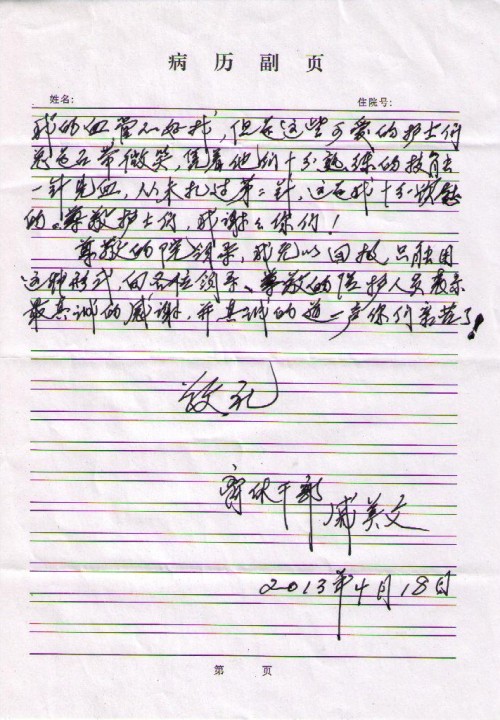 病历副页
姓名: 住院号:
我的血管不好找,但是这些可爱的护士们
总是面带微笑,凭着他们十分熟练的技能
一针见血,从未扎过第二针,这也我十分欣慰
的。尊敬护士们,我谢谢你们!
尊敬的院领导,我无以回报只能用
这种形式向各位领导、尊敬的医护人员表示
最真诚的感谢,并真诚的道一声你们辛苦了!
敬礼
离休干部 戚美文
2013年4月18日
第 页